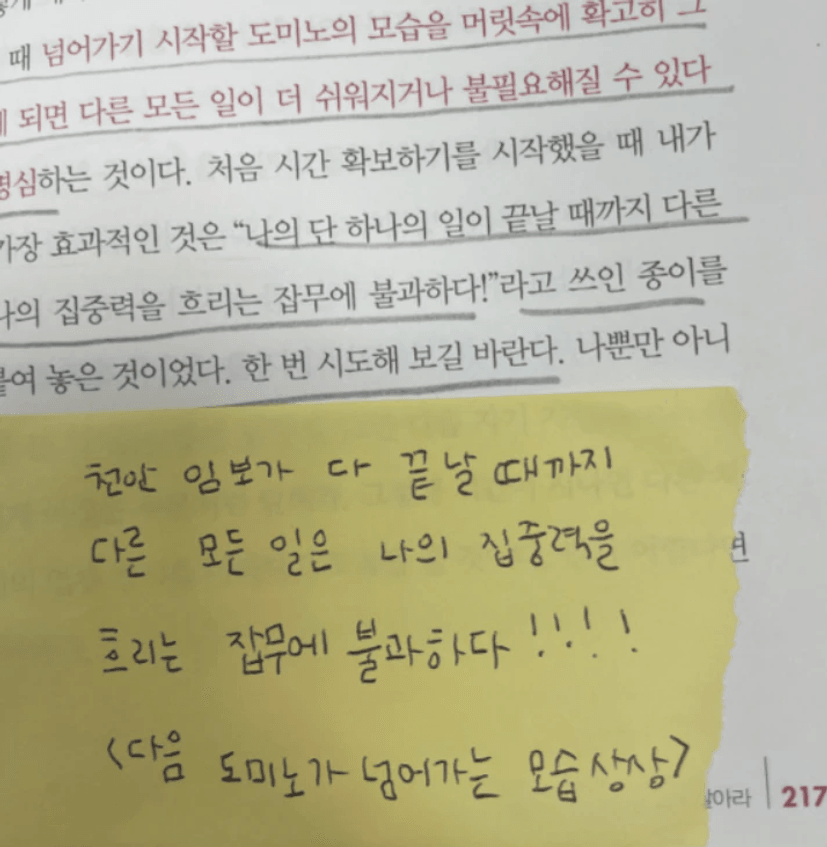 때 넘어가기 시작할 도미노의 모습을 머릿속에 확고히 그
되면 다른 모든 일이 더 쉬워지거나 불필요해질 수 있다
명심하는 것이다. 처음 시간 확보하기를 시작했을 때 내가
가장 효과적인 것은 “나의 단 하나의 일이 끝날 때까지 다른
나의 집중력을 흐리는 잡무에 불과하다!”라고 쓰인 종이를
붙여 놓은 것이었다. 한 번 시도해 보길 바란다. 나뿐만 아니
천안 임보가 다 끝날 때까지
다른 모든 일은 나의 집중력을
면
흐리는 잡무에 불과하다!!!!
<다음 도미노가 넘어가는 모습 상상>
217